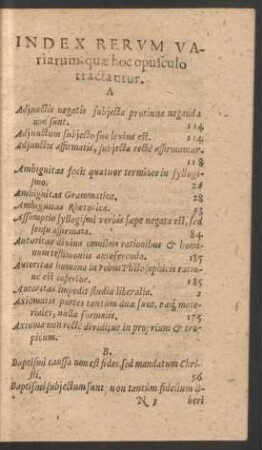 INDEX RERVM VA-
riarum, quæ hoc opusculo
tractantur.
A
Adjunctis negatis subjecta protinus neganda
non sunt. 114
Adjunctum subjecto suo levius est. 114
Adjunctis affirmatis, subjecta rectè affirmantur.
118
Ambiguitas facit quatuor terminos in syllogi-
smo. 28
Ambiguitas Grammatica. 28
Ambiguitas Rhetorica. 23
Assumptio syllogismi verbis sæpe negata est, sed
sensu affirmata. 84
Autoritas divina omnibus rationibus & homi-
num testimoniis anteferenda. 185
Autoritas humana in rebus Philosophicis ratio-
ne est inferior. 185
Autoritas impedit studia liberalia. 2
Axiomatis partes tantum duæ sunt, eæq́; mate-
riales, nulla formalis. 175
Axioma non rectè dividitur in proprium & tro-
picum.
B.
Baptismi caussa non est fides, sed mandatum Chri-
sti. 56
Baptismi subjectum sunt, non tantùm fidelium li-
N 3 beri